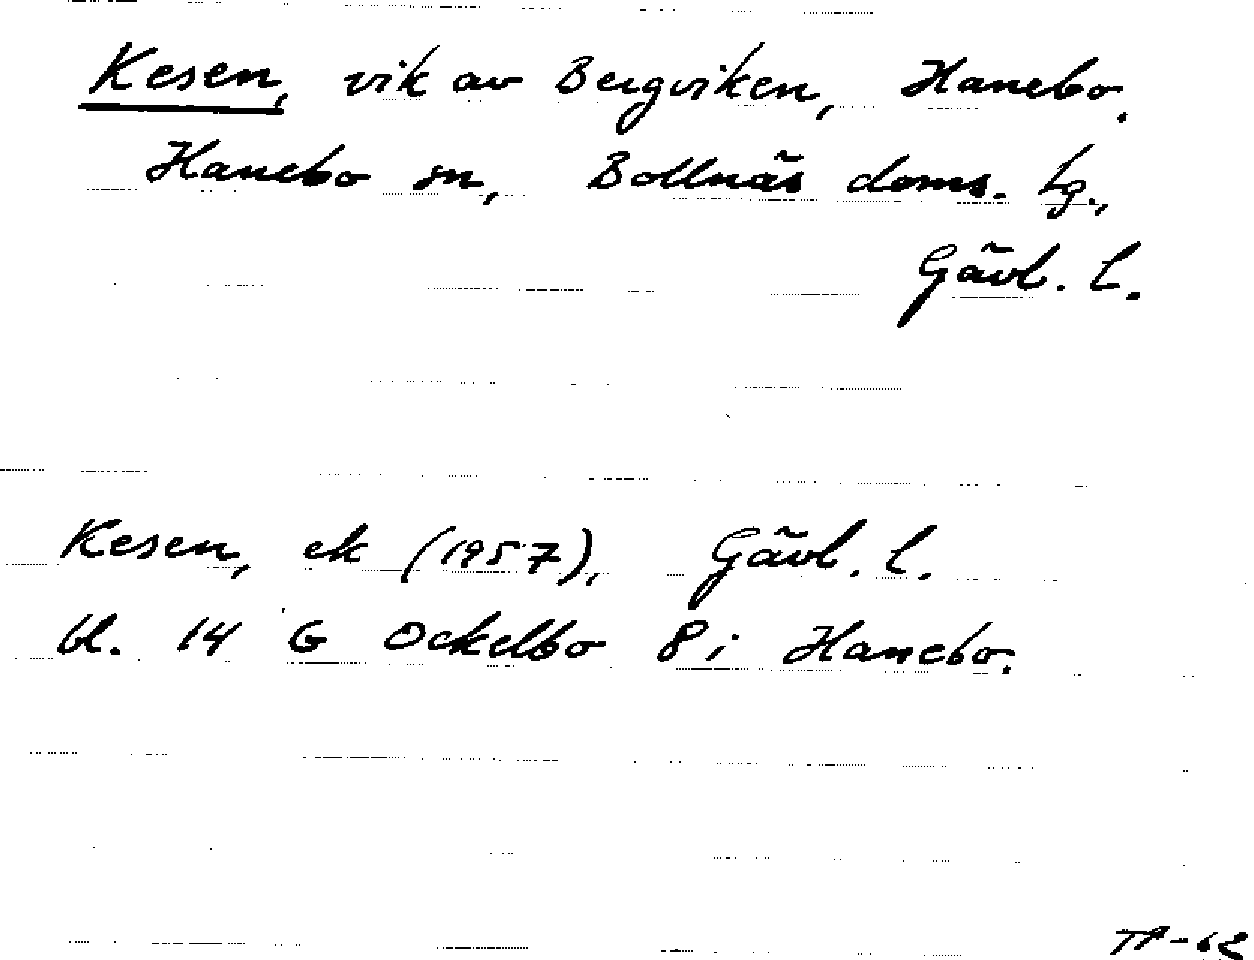 Kesen, vik av Bergviken, Hanebo.
Hanebo sn, Bollnäs doms. hg.,
Gävl. l.
Kesen, ek (1957), Gävl. l.
bl. 14 G Ockelbo 8 i Hanebo.